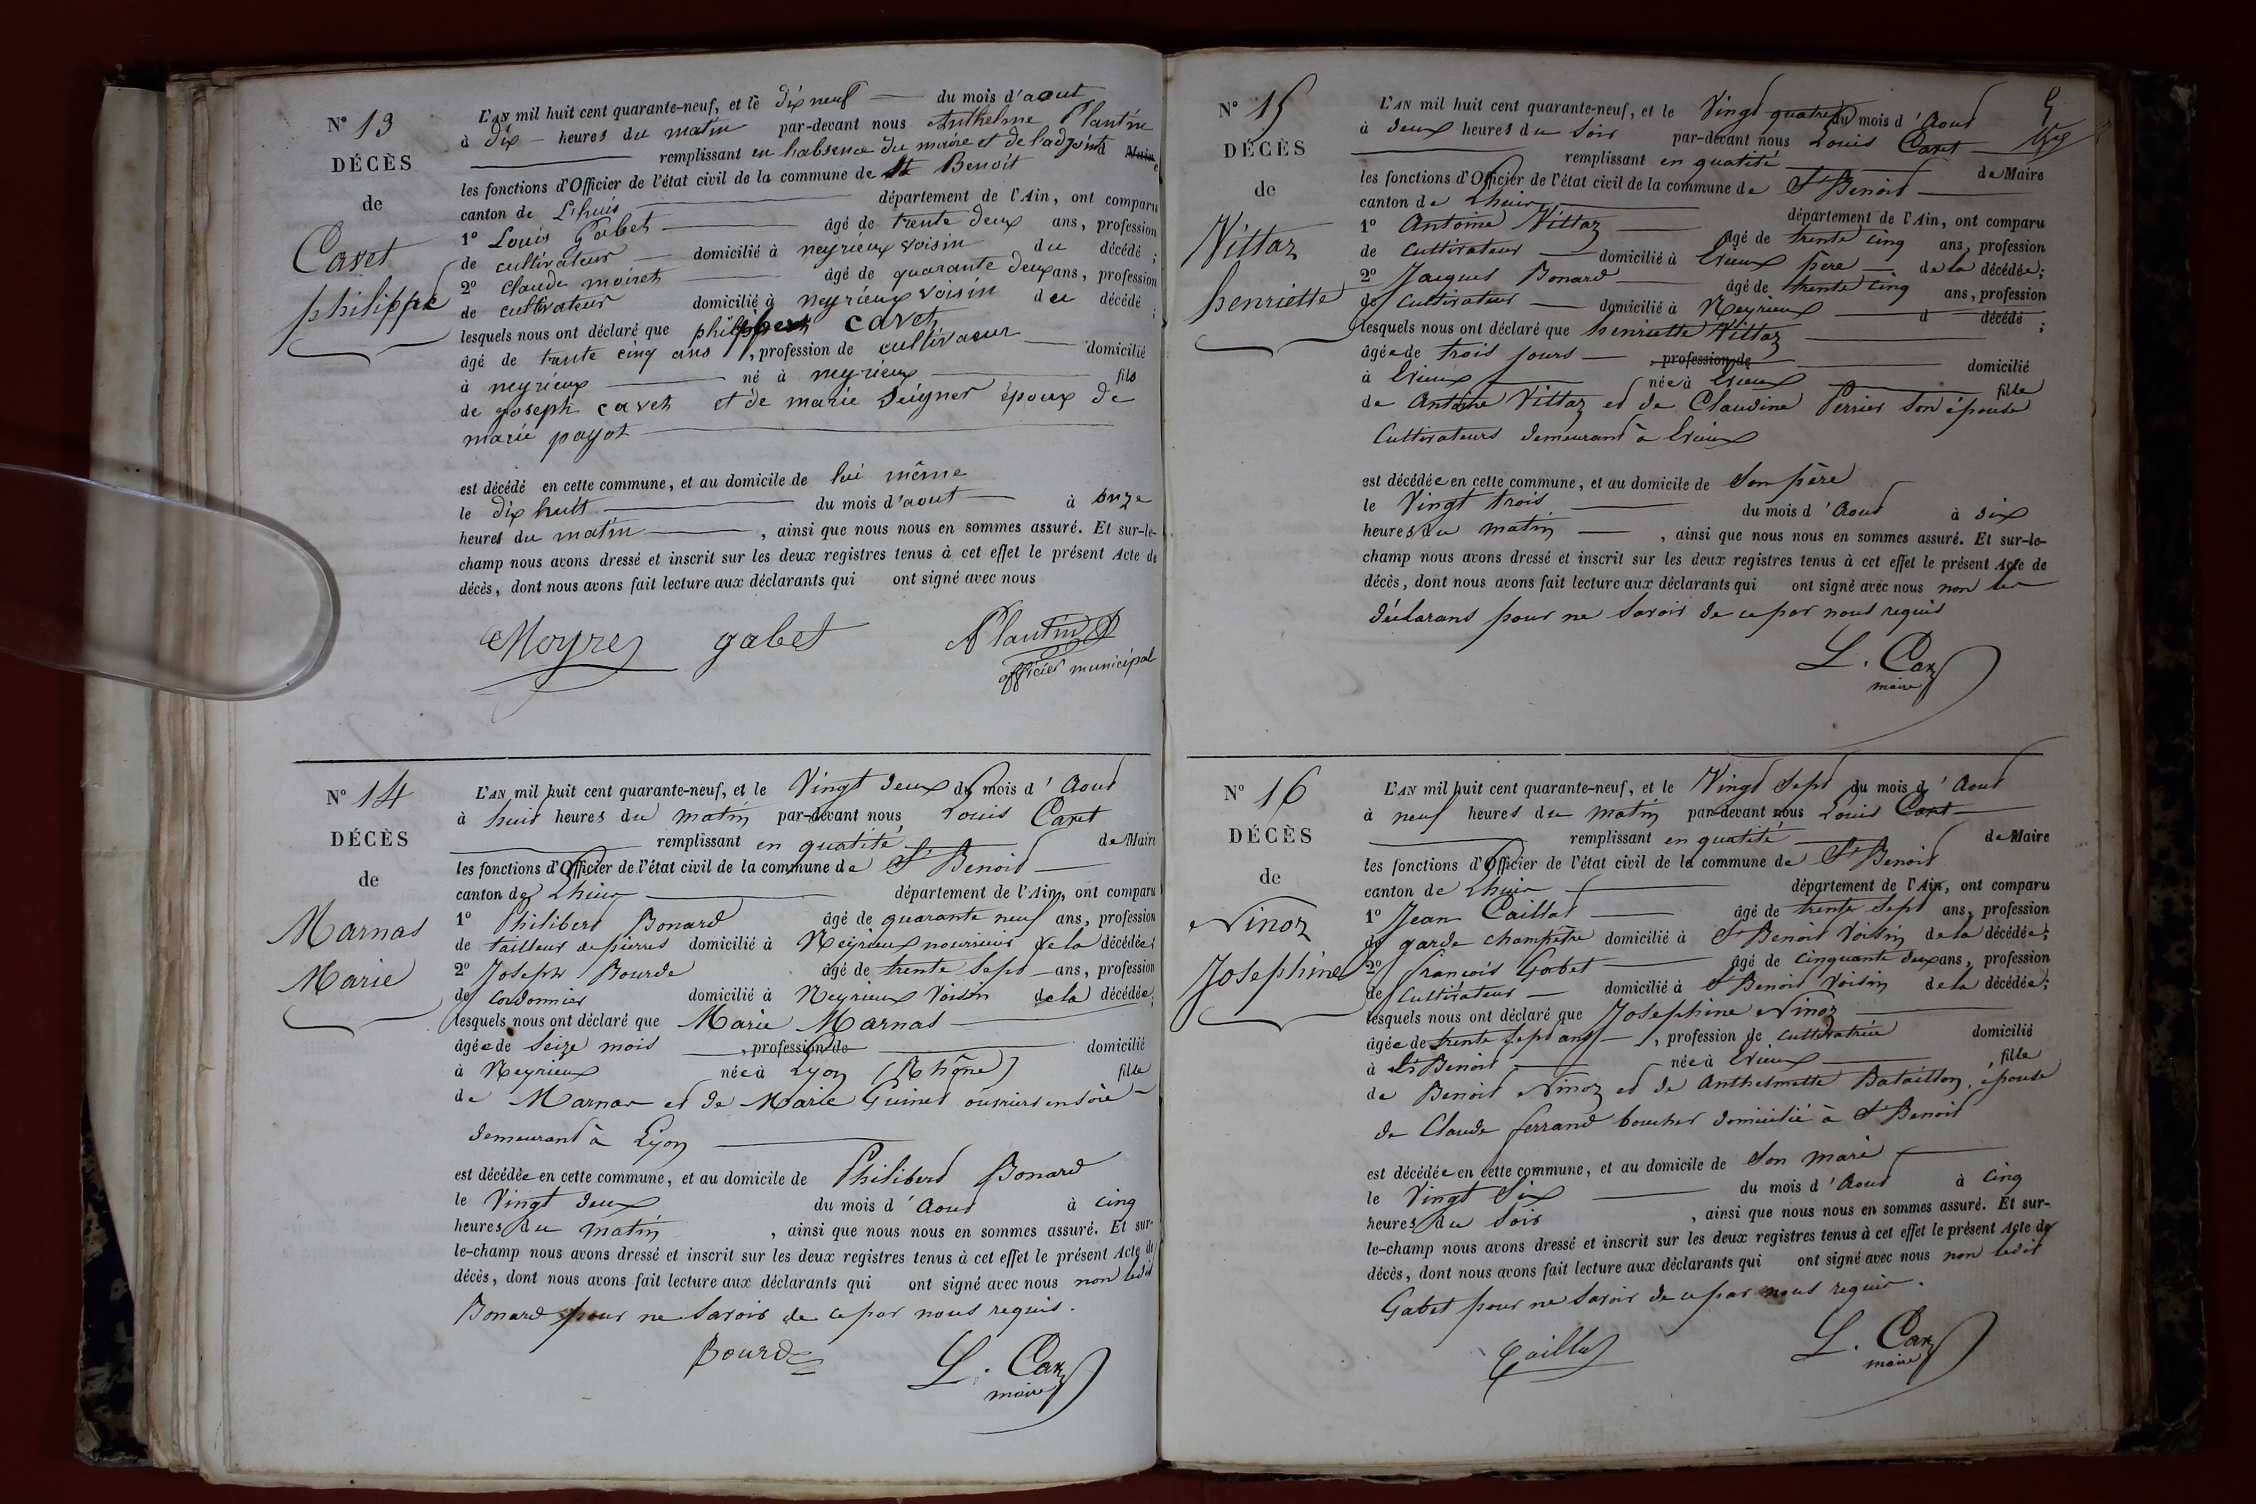 N° 13
DÉCÈS
de
Cavet
philippe
L'AN mil huit cent quarante-neuf, et le dix neuf du mois d'aout
à dix heures du matin par-devant nous Anthelme Plantin
remplissant en l'absence du maire et de l'adjoint
les fonctions d'Officier de l'état civil de la commune de St Benoit
canton de L'huis département de l'Ain, ont comparu
1° Louis Gabet âgé de trente deux ans, profession
de cultivateur domicilié à neyrieux voisin du décédé ;
2° claude moiret âgé de quarante deux ans, profession
de cultivateur domicilié à neyrieux voisin du décédé ;
lesquels nous ont déclaré que philibert cavet
âgé de trente cinq ans, profession de cultivateur domicilié
à neyrieux né à neyrieux fils
de joseph cavet et de marie Seigner époux de
marie payot
est décédé en cette commune, et au domicile de lui même
le dix huit du mois d'aout à onze
heures du matin, ainsi que nous nous en sommes assuré. Et sur-le-
champ nous avons dressé et inscrit sur les deux registres tenus à cet effet le présent Acte de
décès, dont nous avons fait lecture aux déclarants qui ont signé avec nous
Moyret gabet Plantin
officier municipal
N° 14
DÉCÈS
de
Marnas
Marie
L'AN mil huit cent quarante-neuf, et le Vingt deux du mois d'Aout
à huit heures du matin par-devant nous Louis Caret
remplissant en qualité de Maire
les fonctions d'Officier de l'état civil de la commune de St Benoit
canton de Lhuis département de l'Ain, ont comparu
1° Philibert Bonard âgé de quarante neuf ans, profession
de tailleur de pierres domicilié à Neyrieux nourricier de la décédée ;
2° Joseph Bourde âgé de trente sept ans, profession
de cordonnier domicilié à Neyrieux Voisin de la décédée ;
lesquels nous ont déclaré que Marie Marnas
âgée de Seize mois, profession de domicilié
à Neyrieux née à Lyon (Rhône) fille
de Marnas et de Marie Guinet ouvriers en soie
demeurant à Lyon
est décédée en cette commune, et au domicile de Philibert Bonard
le Vingt deux du mois d'Aout à cinq
heures du matin, ainsi que nous nous en sommes assuré. Et sur-
le-champ nous avons dressé et inscrit sur les deux registres tenus à cet effet le présent Acte de
décès, dont nous avons fait lecture aux déclarants qui ont signé avec nous non ledit
Bonard pour ne savoir de ce par nous requis.
Bourde L. Car
maire
N° 15
DÉCÈS
de
Vittaz
henriette
L'AN mil huit cent quarante-neuf, et le Vingt quatre du mois d'Aout
à deux heures du soir par-devant nous Louis Caret
remplissant en qualité de Maire
les fonctions d'Officier de l'état civil de la commune de St Benoit
canton de Lhuis département de l'Ain, ont comparu
1° Antoine Vittaz âgé de trente cinq ans, profession
de cultivateur domicilié à Evieux père de la décédée ;
2° Jacques Bonard âgé de trente cinq ans, profession
de cultivateur domicilié à Neyrieux d décédé ;
lesquels nous ont déclaré que henriette Vittaz
âgée de trois jours, profession de domicilié
à Evieux née à Evieux fille
de Antoine Vittaz et de Claudine Perrier son épouse
Cultivateurs demeurant à Evieux
est décédée en cette commune, et au domicile de Son père
le Vingt trois du mois d'Aout à dix
heures du matin, ainsi que nous nous en sommes assuré. Et sur-le-
champ nous avons dressé et inscrit sur les deux registres tenus à cet effet le présent Acte de
décès, dont nous avons fait lecture aux déclarants qui ont signé avec nous non les
déclarans pour ne savoir de ce par nous requis
L. Car
maire
N° 16
DÉCÈS
de
Ninoz
Josephine
L'AN mil huit cent quarante-neuf, et le Vingt Sept du mois d'Aout
à neuf heures du matin par-devant nous Louis Caret
remplissant en qualité de Maire
les fonctions d'Officier de l'état civil de la commune de St Benoit
canton de Lhuis département de l'Ain, ont comparu
1° Jean Caillat âgé de trente Sept ans, profession
de garde champêtre domicilié à St Benoit Voisin de la décédée ;
2° françois Gabet âgé de cinquante deux ans, profession
de cultivateur domicilié à St Benoit Voisin de la décédée ;
lesquels nous ont déclaré que Josephine Ninoz
âgée de trente sept ans, profession de cultivatrice domicilié
à St Benoit née à Evieux fille
de Benoit Ninoz et de Anthelmette Bataillon, épouse
de Claude ferrand boucher domicilié à St Benoit
est décédée en cette commune, et au domicile de Son mari
le Vingt Six du mois d'Aout à cinq
heures du Soir, ainsi que nous nous en sommes assuré. Et sur-
le-champ nous avons dressé et inscrit sur les deux registres tenus à cet effet le présent Acte de
décès, dont nous avons fait lecture aux déclarants qui ont signé avec nous non ledit
Gabet pour ne savoir de ce par nous requis.
Caillat L. Car
maire